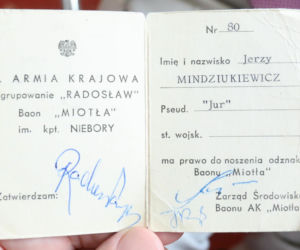 ARMIA KRAJOWA
zgrupowanie „RADOSŁAW”
Baon „MIOTŁA”
im. kpt. NIEBORY
Zatwierdzam:
Nr 80
Imię i nazwisko Jerzy
MINDZIUKIEWICZ
Pseud. "Jur"
st. wojsk.
ma prawo do noszenia odznak
Baonu „Miotła”
Zarząd Środowisk
Baonu AK „Miotła